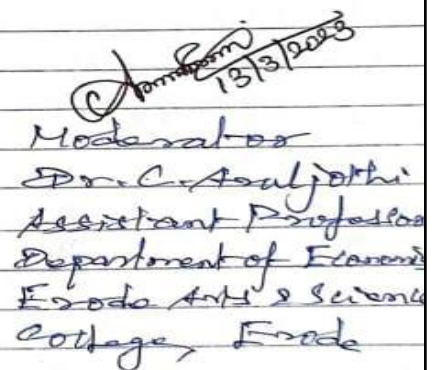 13/3/2023
Moderator
Dr. C. Aruljothi
Assistant Professor
Department of Economi
Erode Arts & Science
College, Erode